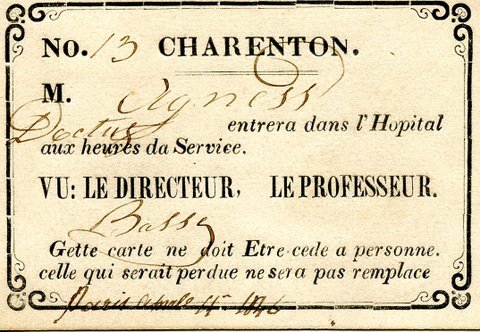 NO. 13 CHARENTON.
M. Agness
Doctus entrera dans l'Hopital
aux heures da Service.
VU: LE DIRECTEUR, LE PROFESSEUR.
Bassy
Gette carte ne doit Etre·cede a personne.
celle qui serait perdue ne sera pas remplace
Paris 1846